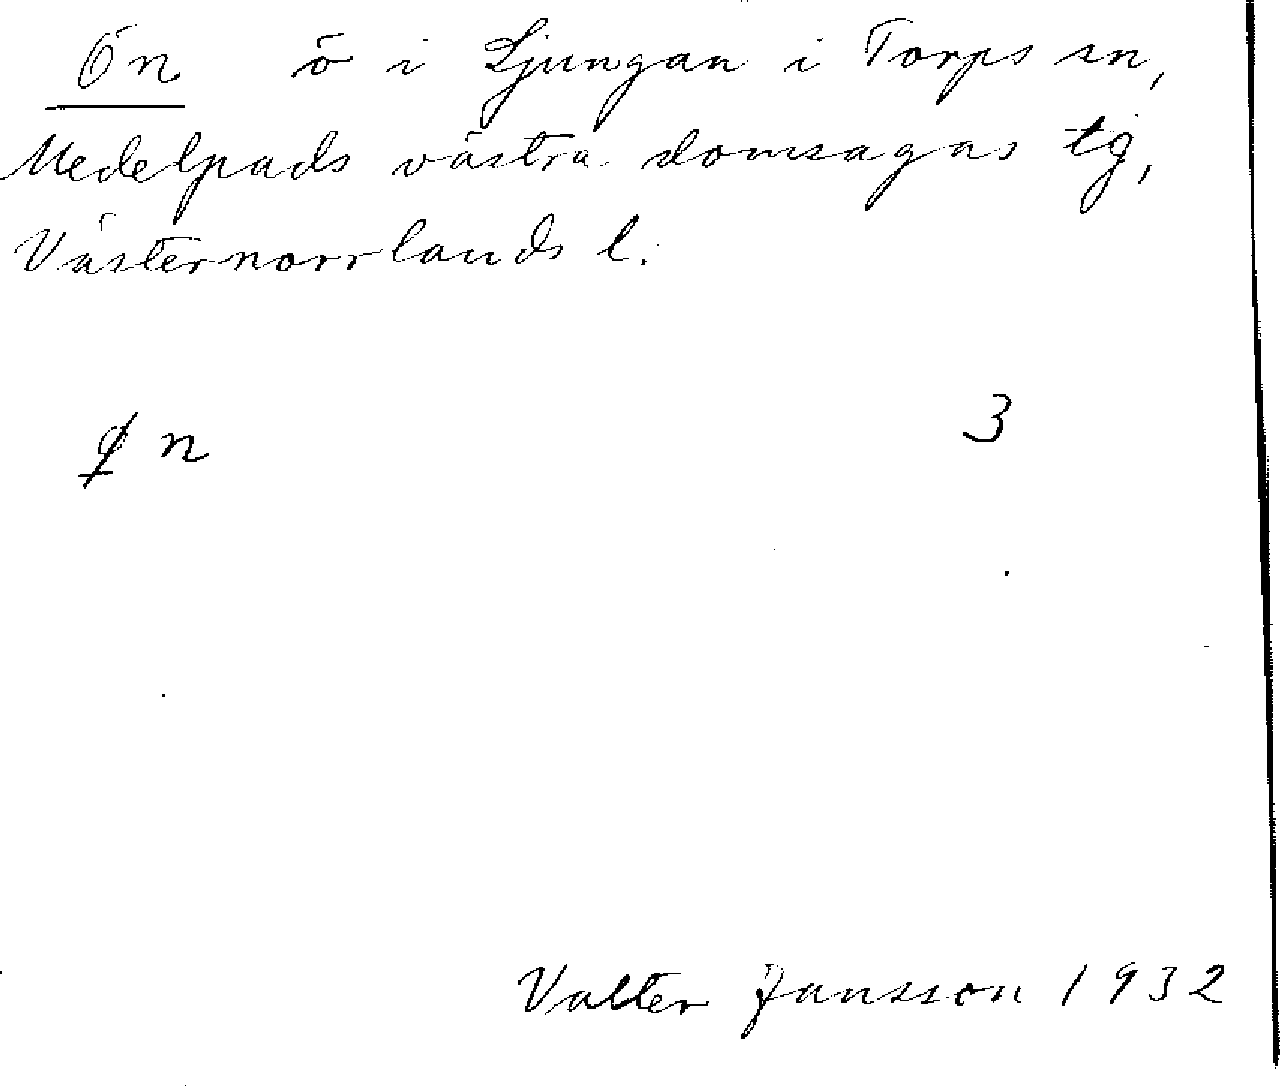 Ön ö i Ljungan i Torps sn,
Medelpads västra domsagas tg,
Västernorrlands l.
ø̲ n 3
Valter Jansson 1932